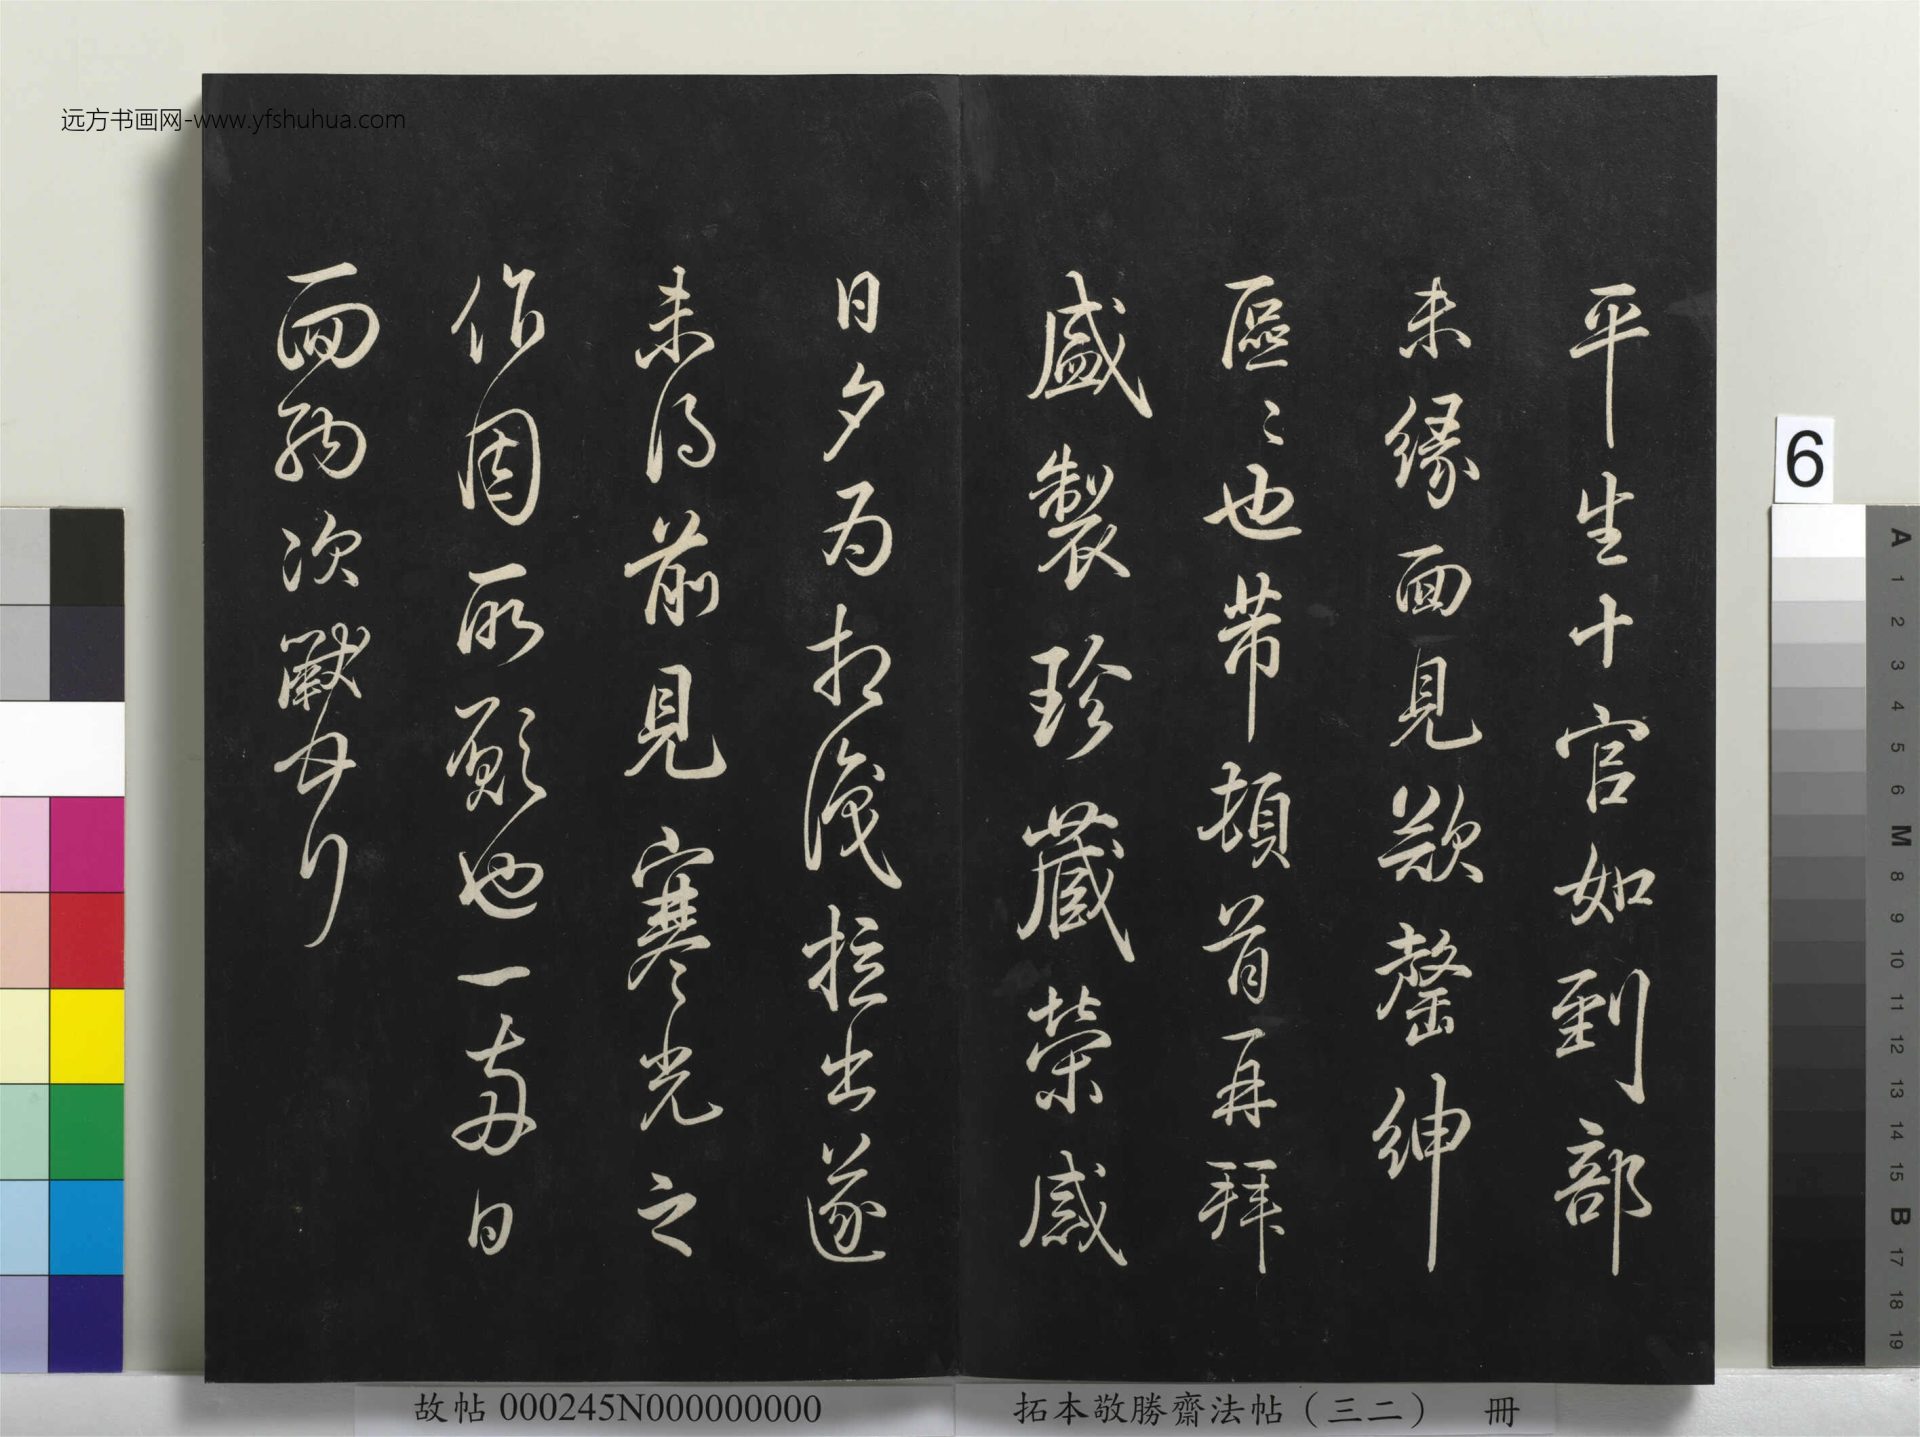 远方书画网-www.yfshuhua.com
平生十官如到部
未緣面見欵罄紳
區〻也芾頓首再拜
盛製珍藏榮感
日夕為相識拉出遂
未得前見寒光之
作固所願也一兩日
面納次黻頓首
故帖 000245N000000000
拓本敬勝齋法帖（三二） 冊
6
A 1 2 3 4 5 6 M 8 9 10 11 12 13 14 15 B 17 18 19